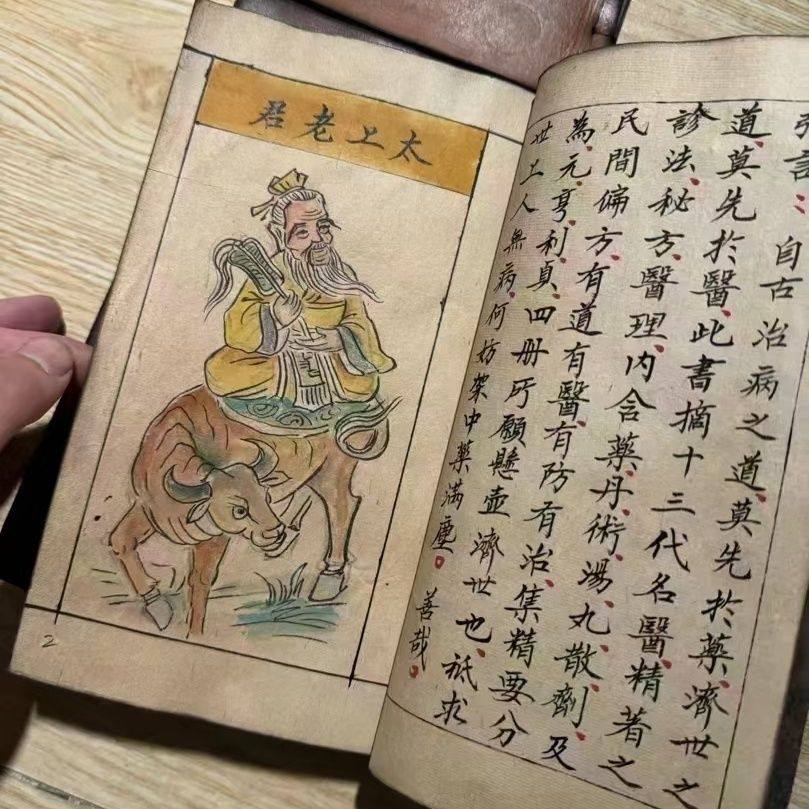 太上老君
2
言：自古治病之道、莫先於藥、濟世之
道、莫先於醫、此書摘十三代名醫、精著之
診法、秘方、醫理、内含藥、丹、術、湯、丸、散、劑、及
民間偏方、有道有醫、有防有治集精要分
為元、亨、利、貞、四册所願懸壺濟世也、祗求
世上人無病、何妨架中藥滿塵。善哉。